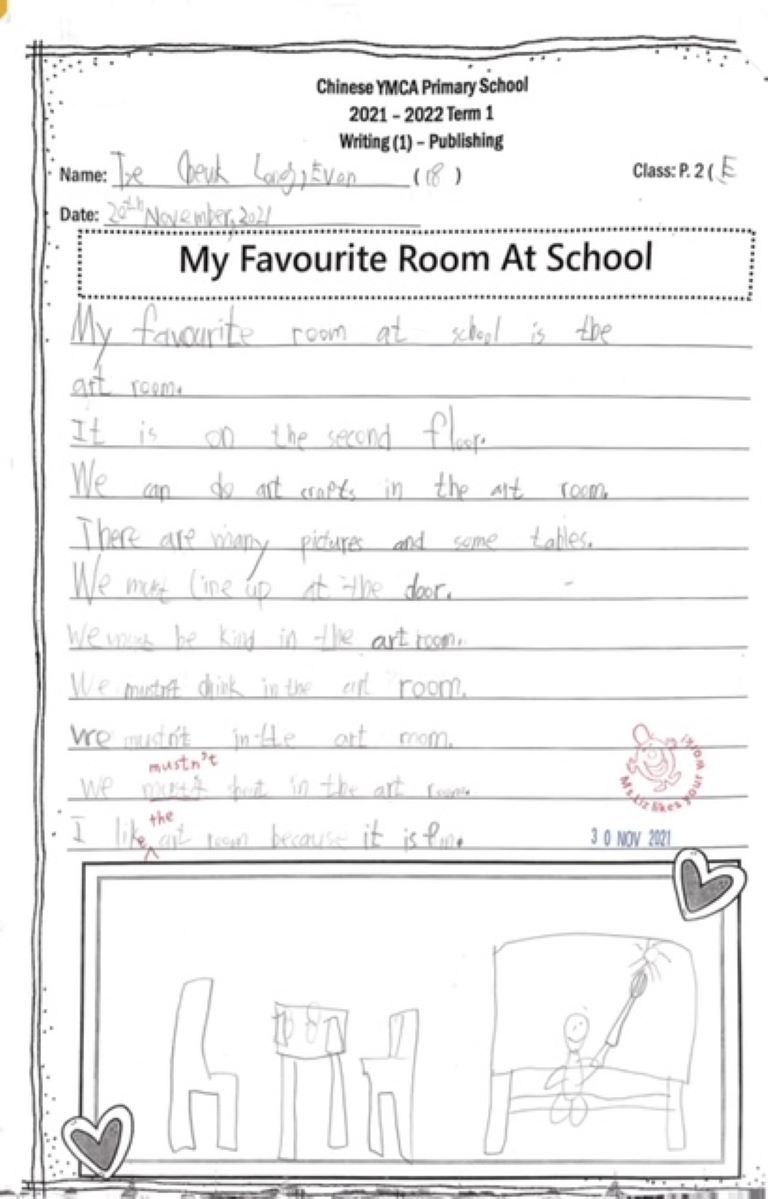 Chinese YMCA Primary School
2021 – 2022 Term 1
Writing (1) – Publishing
Name: Tse Cheuk Long, Evan (18) Class: P. 2 ( E
Date: 20th November, 2021
My Favourite Room At School
My favourite room at school is the
art room.
It is on the second floor.
We can do art crafts in the art room.
There are many pictures and some tables.
We must line up at the door.
We must be kind in the art room.
We mustn't drink in the art room.
We mustn't in the art room.
mustn't
We in the art room.
the
I like art room because it is fun.
Ms Liz likes your work!
30 NOV 2021